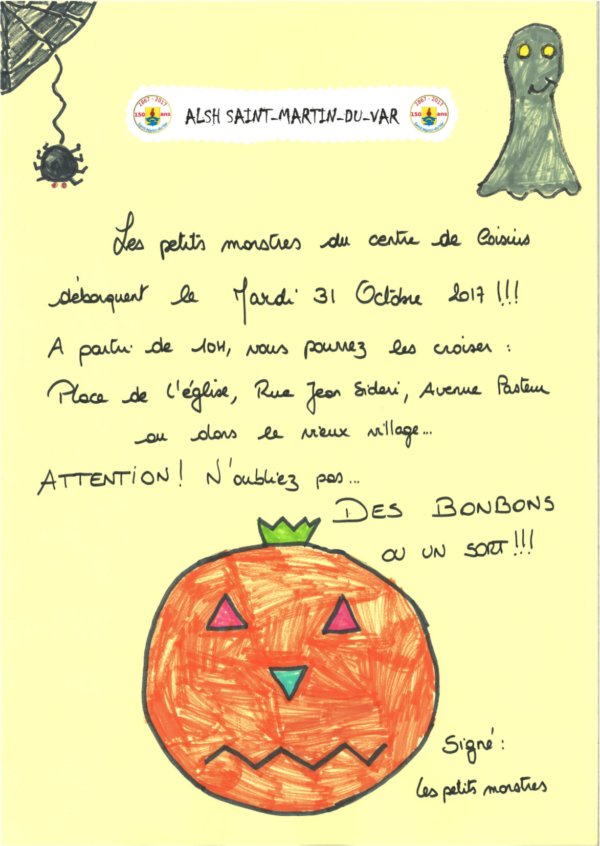 1867 - 2017
150 ans
Saint-Martin-du-Var
ALSH SAINT-MARTIN-DU-VAR
1867 - 2017
150 ans
Saint-Martin-du-Var
Les petits monstres du centre de loisirs
débarquent le Mardi 31 Octobre 2017 !!!
A partir de 10H, vous pourrez les croiser :
Place de l'église, Rue Jean Sideri, Avenue Pasteur
ou dans le vieux village...
ATTENTION ! N'oubliez pas...
DES BONBONS
OU UN SORT !!!
Signé :
Les petits monstres